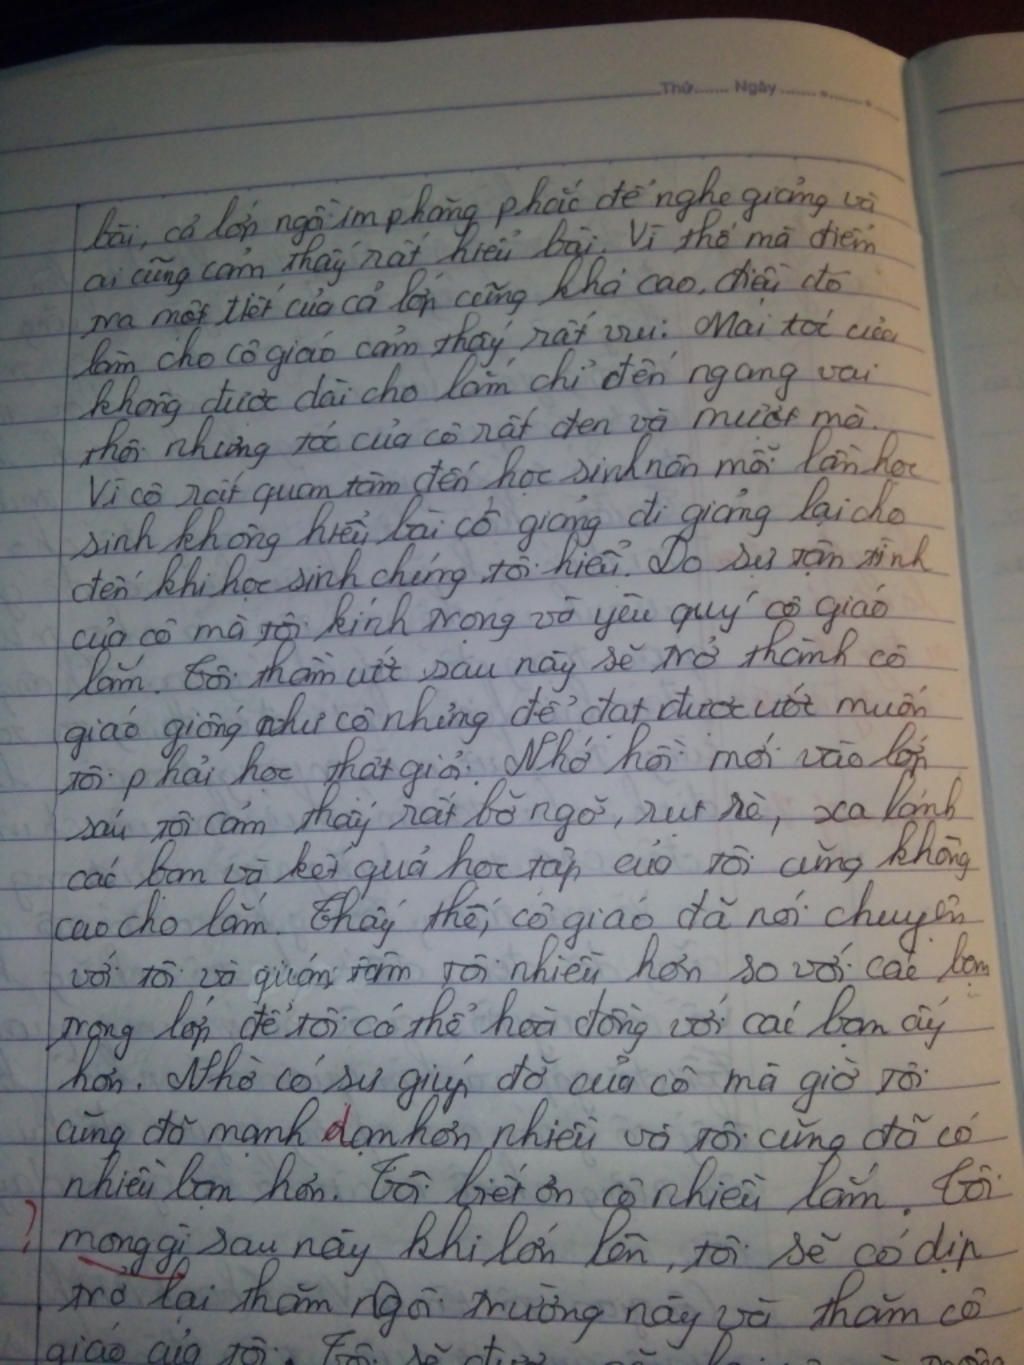 Thứ....... Ngày ...............
bài, cả lớp ngồi im phăng phắc để nghe giảng và
ai cũng cảm thấy rất hiểu bài. Vì thế mà điểm
ma một tiết của cả lớp cũng khá cao, điều đó
làm cho cô giáo cảm thấy rất vui. Mai tóc của
không được dài cho lắm chỉ đến ngang vai
thôi nhưng tóc của cô rất đen và mượt mà.
Vì cô rất quan tâm đến học sinh nên mỗi lần học
sinh không hiểu bài cô giảng đi giảng lại cho
đến khi học sinh chúng tôi hiểu. Do sự tận tình
của cô mà tôi kính trọng và yêu quý cô giáo
lắm. Tôi thầm ước sau này sẽ trở thành cô
giáo giống như cô nhưng để đạt được ước muốn
tôi phải học thật giỏi. Nhớ hồi mới vào lớp
sáu tôi cảm thấy rất bỡ ngỡ, rụt rè, xa lánh
các bạn và kết quả học tập của tôi cũng không
cao cho lắm. Thấy thế, cô giáo đã nói chuyện
với tôi và quan tâm tôi nhiều hơn so với các bạn
trong lớp để tôi có thể hoà đồng với các bạn ấy
hơn. Nhờ có sự giúp đỡ của cô mà giờ tôi
cũng đã mạnh dạn hơn nhiều và tôi cũng đã có
nhiều bạn hơn. Tôi biết ơn cô nhiều lắm. Tôi
? mong gì sau này khi lớn lên, tôi sẽ có dịp
trở lại thăm ngôi trường này và thăm cô
giáo của tôi. Tôi sẽ